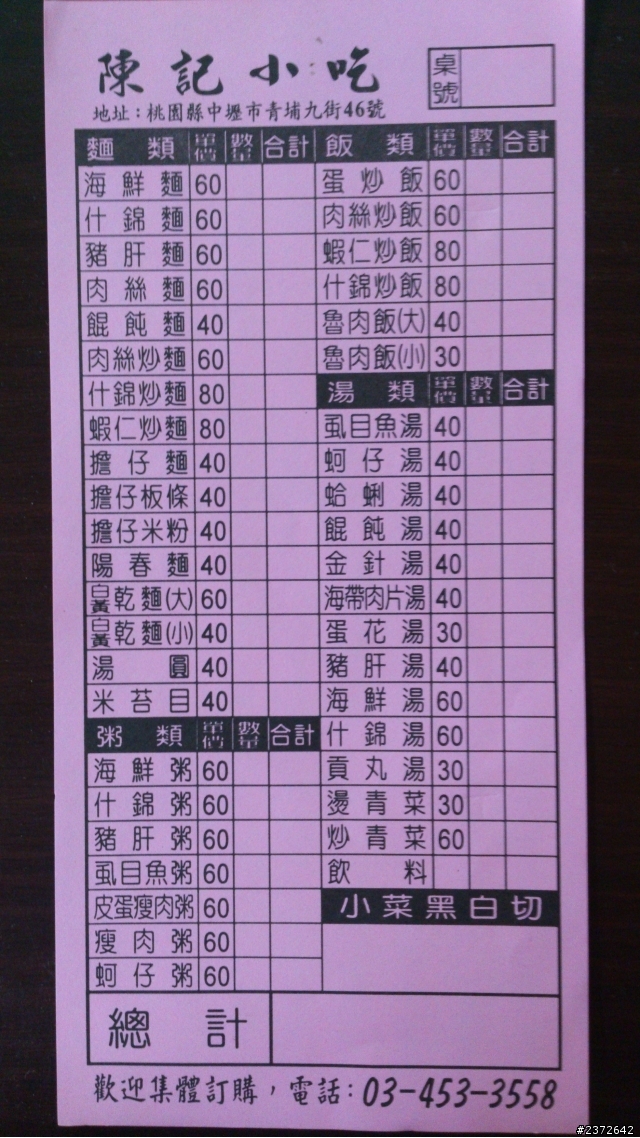 陳記小吃
桌號
地址：桃園縣中壢市青埔九街46號
麵類 單價 數量 合計
海鮮麵 60
什錦麵 60
豬肝麵 60
肉絲麵 60
餛飩麵 40
肉絲炒麵 60
什錦炒麵 80
蝦仁炒麵 80
擔仔麵 40
擔仔板條 40
擔仔米粉 40
陽春麵 40
白黃乾麵(大) 60
白黃乾麵(小) 40
湯圓 40
米苔目 40
粥類 單價 數量 合計
海鮮粥 60
什錦粥 60
豬肝粥 60
虱目魚粥 60
皮蛋瘦肉粥 60
瘦肉粥 60
蚵仔粥 60
飯類 單價 數量 合計
蛋炒飯 60
肉絲炒飯 60
蝦仁炒飯 80
什錦炒飯 80
魯肉飯(大) 40
魯肉飯(小) 30
湯類 單價 數量 合計
虱目魚湯 40
蚵仔湯 40
蛤蜊湯 40
餛飩湯 40
金針湯 40
海帶肉片湯 40
蛋花湯 30
豬肝湯 40
海鮮湯 60
什錦湯 60
貢丸湯 30
燙青菜 30
炒青菜 60
飲料
小菜黑白切
總計
歡迎集體訂購，電話：03-453-3558
#2372642